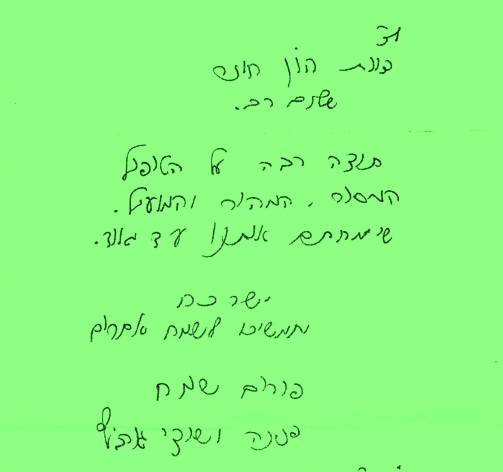 לצוות הון חונט
שלום רב.
תודה רבה על הטיפול
המסור, המהיר והמועיל.
שימחתם אותנו עד מאוד.
יישר כח
ותמשיכו לשמח אחרים
פורים שמח
פנינה ושוקי